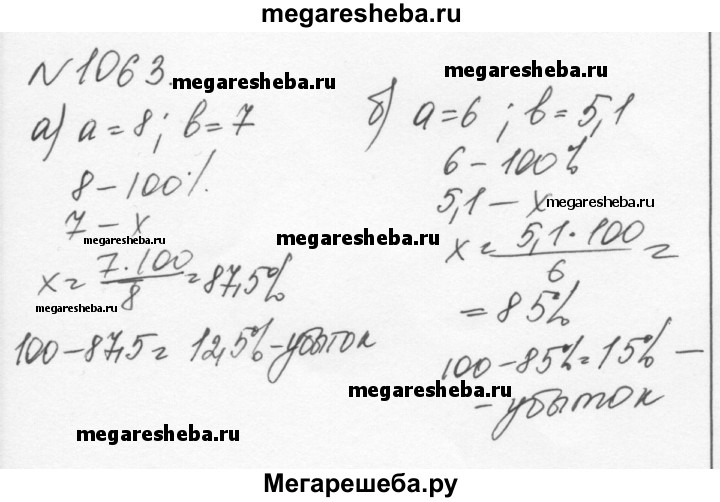 megaresheba.ru
№1063. megaresheba.ru
а) a=8; b=7
8-100%.
7-x
megaresheba.ru
x=7·100/8=87,5%
megaresheba.ru
100-87,5= 12,5%-убыток
megaresheba.ru
megaresheba.ru
б) a=6; b=5,1
6-100%
5,1-x megaresheba.ru
megaresheba.ru
x=5,1·100/6=
=85%
100-85%=15%-
megaresheba.ru
-убыток
megaresheba.ru
Мегарешеба.ру